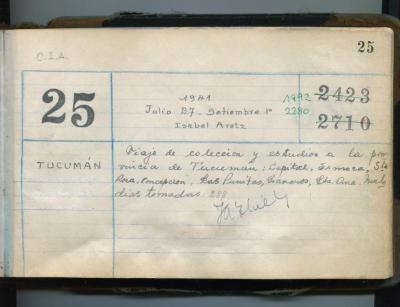 C.I.A.
25
25
1941
Julio 27 - Setiembre 1º
Isabel Aretz
1992
2280
2423
2710
TUCUMÁN
Viaje de colección y estudios a la pro-
vincia de Tucumán: Capital, Sta
Rosa, Concepción, Las Cañitas, Graneros, Sta. Ana.
días tomadas: 288